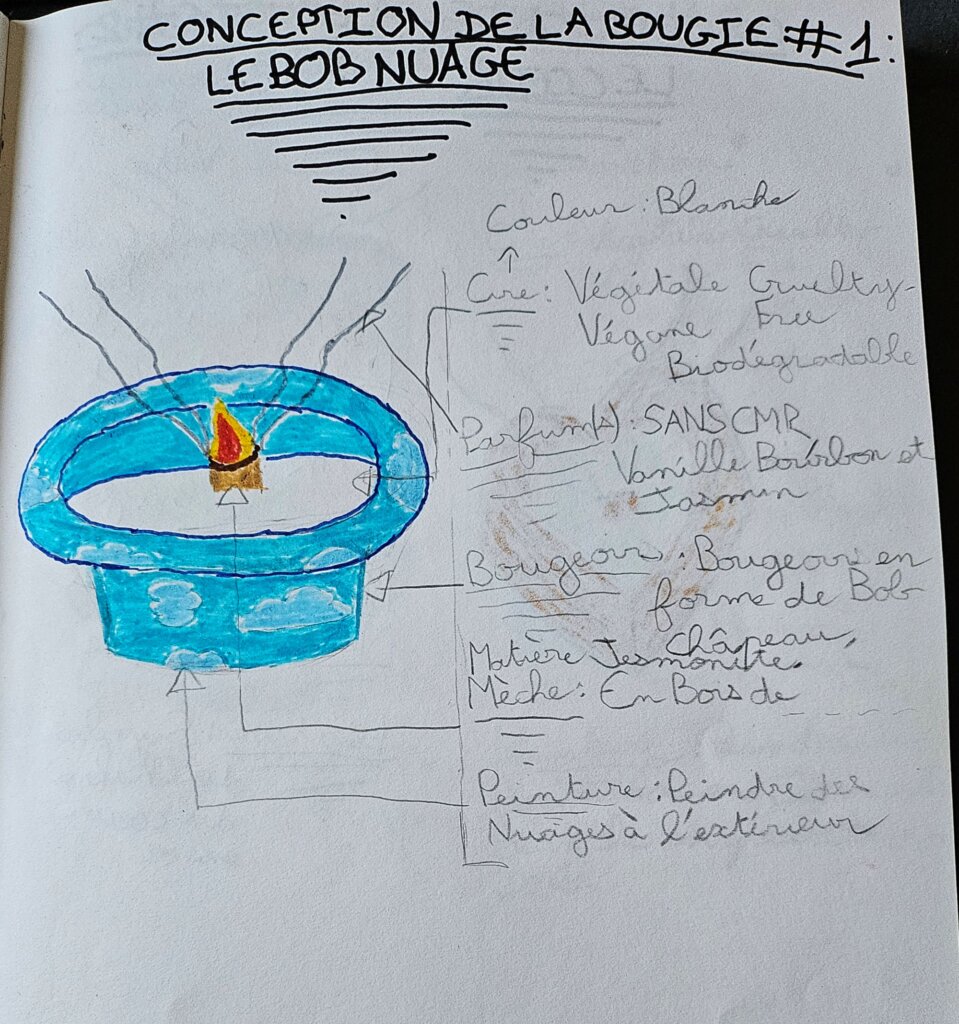 CONCEPTION DE LA BOUGIE #1:
LE BOB NUAGE
Couleur: Blanche
Cire: Végétale Cruelty-
Végane Free
Biodégradable
Parfum(s): SANS CMR
Vanille Bourbon et
Jasmin
Bougeoir: Bougeoir en
forme de Bob
Châpeau,
Matière Jesmonite.
Mèche: En Bois de
Peinture: Peindre des
Nuages à l'extérieur